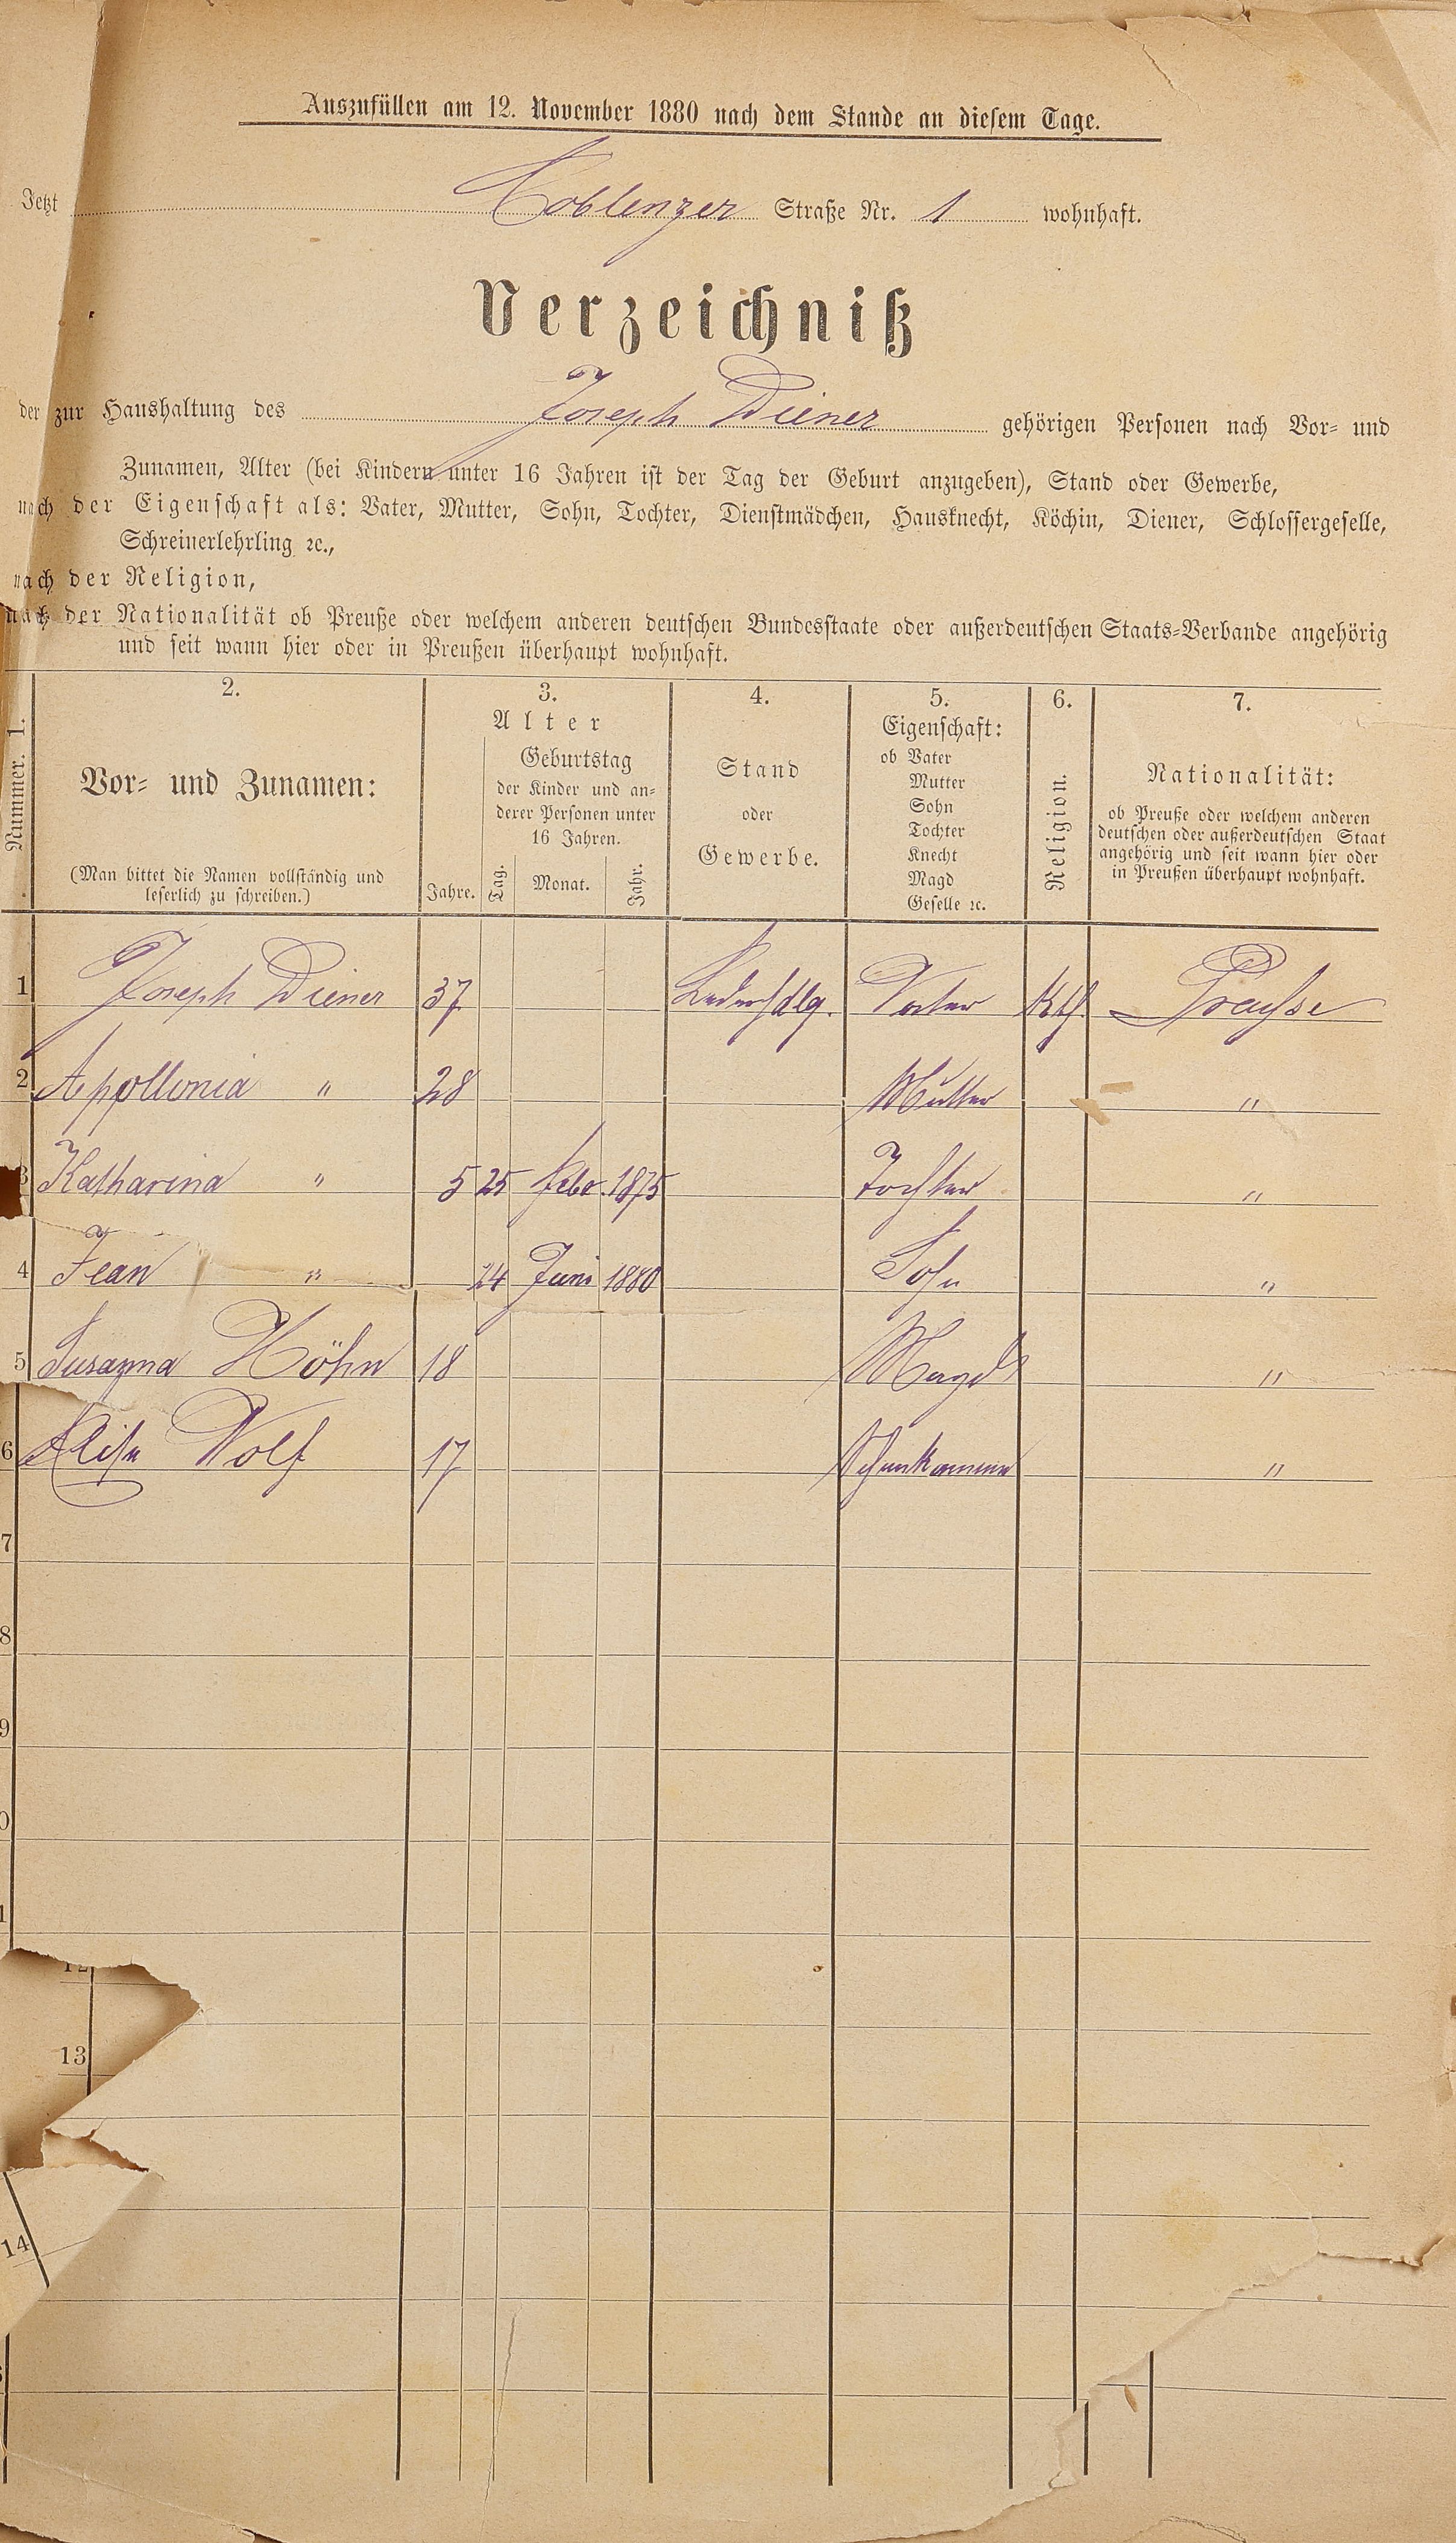 Auszufüllen am 12. November 1880 nach dem Stande an diesem Tage.
Jetzt Coblenzer Straße Nr. 1 wohnhaft.
Verzeichniß
der zur Haushaltung des Joseph Diener gehörigen Personen nach Vor- und
Zunamen, Alter (bei Kindern unter 16 Jahren ist der Tag der Geburt anzugeben), Stand oder Gewerbe,
nach der Eigenschaft als: Vater, Mutter, Sohn, Tochter, Dienstmädchen, Hausknecht, Köchin, Diener, Schlossergeselle,
Schreinerlehrling ꝛc.,
nach der Religion,
nach der Nationalität ob Preuße oder welchem anderen deutschen Bundesstaate oder außerdeutschen Staats-Verbande angehörig
und seit wann hier oder in Preußen überhaupt wohnhaft.
Nummer. 1.
2.
Vor- und Zunamen:
(Man bittet die Namen vollständig und
leserlich zu schreiben.)
3.
Alter
Jahre.
Geburtstag
der Kinder und an-
derer Personen unter
16 Jahren.
Tag. Monat. Jahr.
4.
Stand
oder
Gewerbe.
5.
Eigenschaft:
ob Vater
Mutter
Sohn
Tochter
Knecht
Magd
Geselle ꝛc.
6.
Religion.
7.
Nationalität:
ob Preuße oder welchem anderen
deutschen oder außerdeutschen Staat
angehörig und seit wann hier oder
in Preußen überhaupt wohnhaft.
1 Joseph Diener 37 Vater Kth. Preuße
2 Apollonia " 28 Mutter "
3 Katharina " 5 25 Febr. 1875 Tochter "
4 Jean " 24 Juni 1880 Sohn "
5 Susanna Höhn 18 Magd "
6 Elise Wolf 17 "
7
8
9
0
1
12
13
14